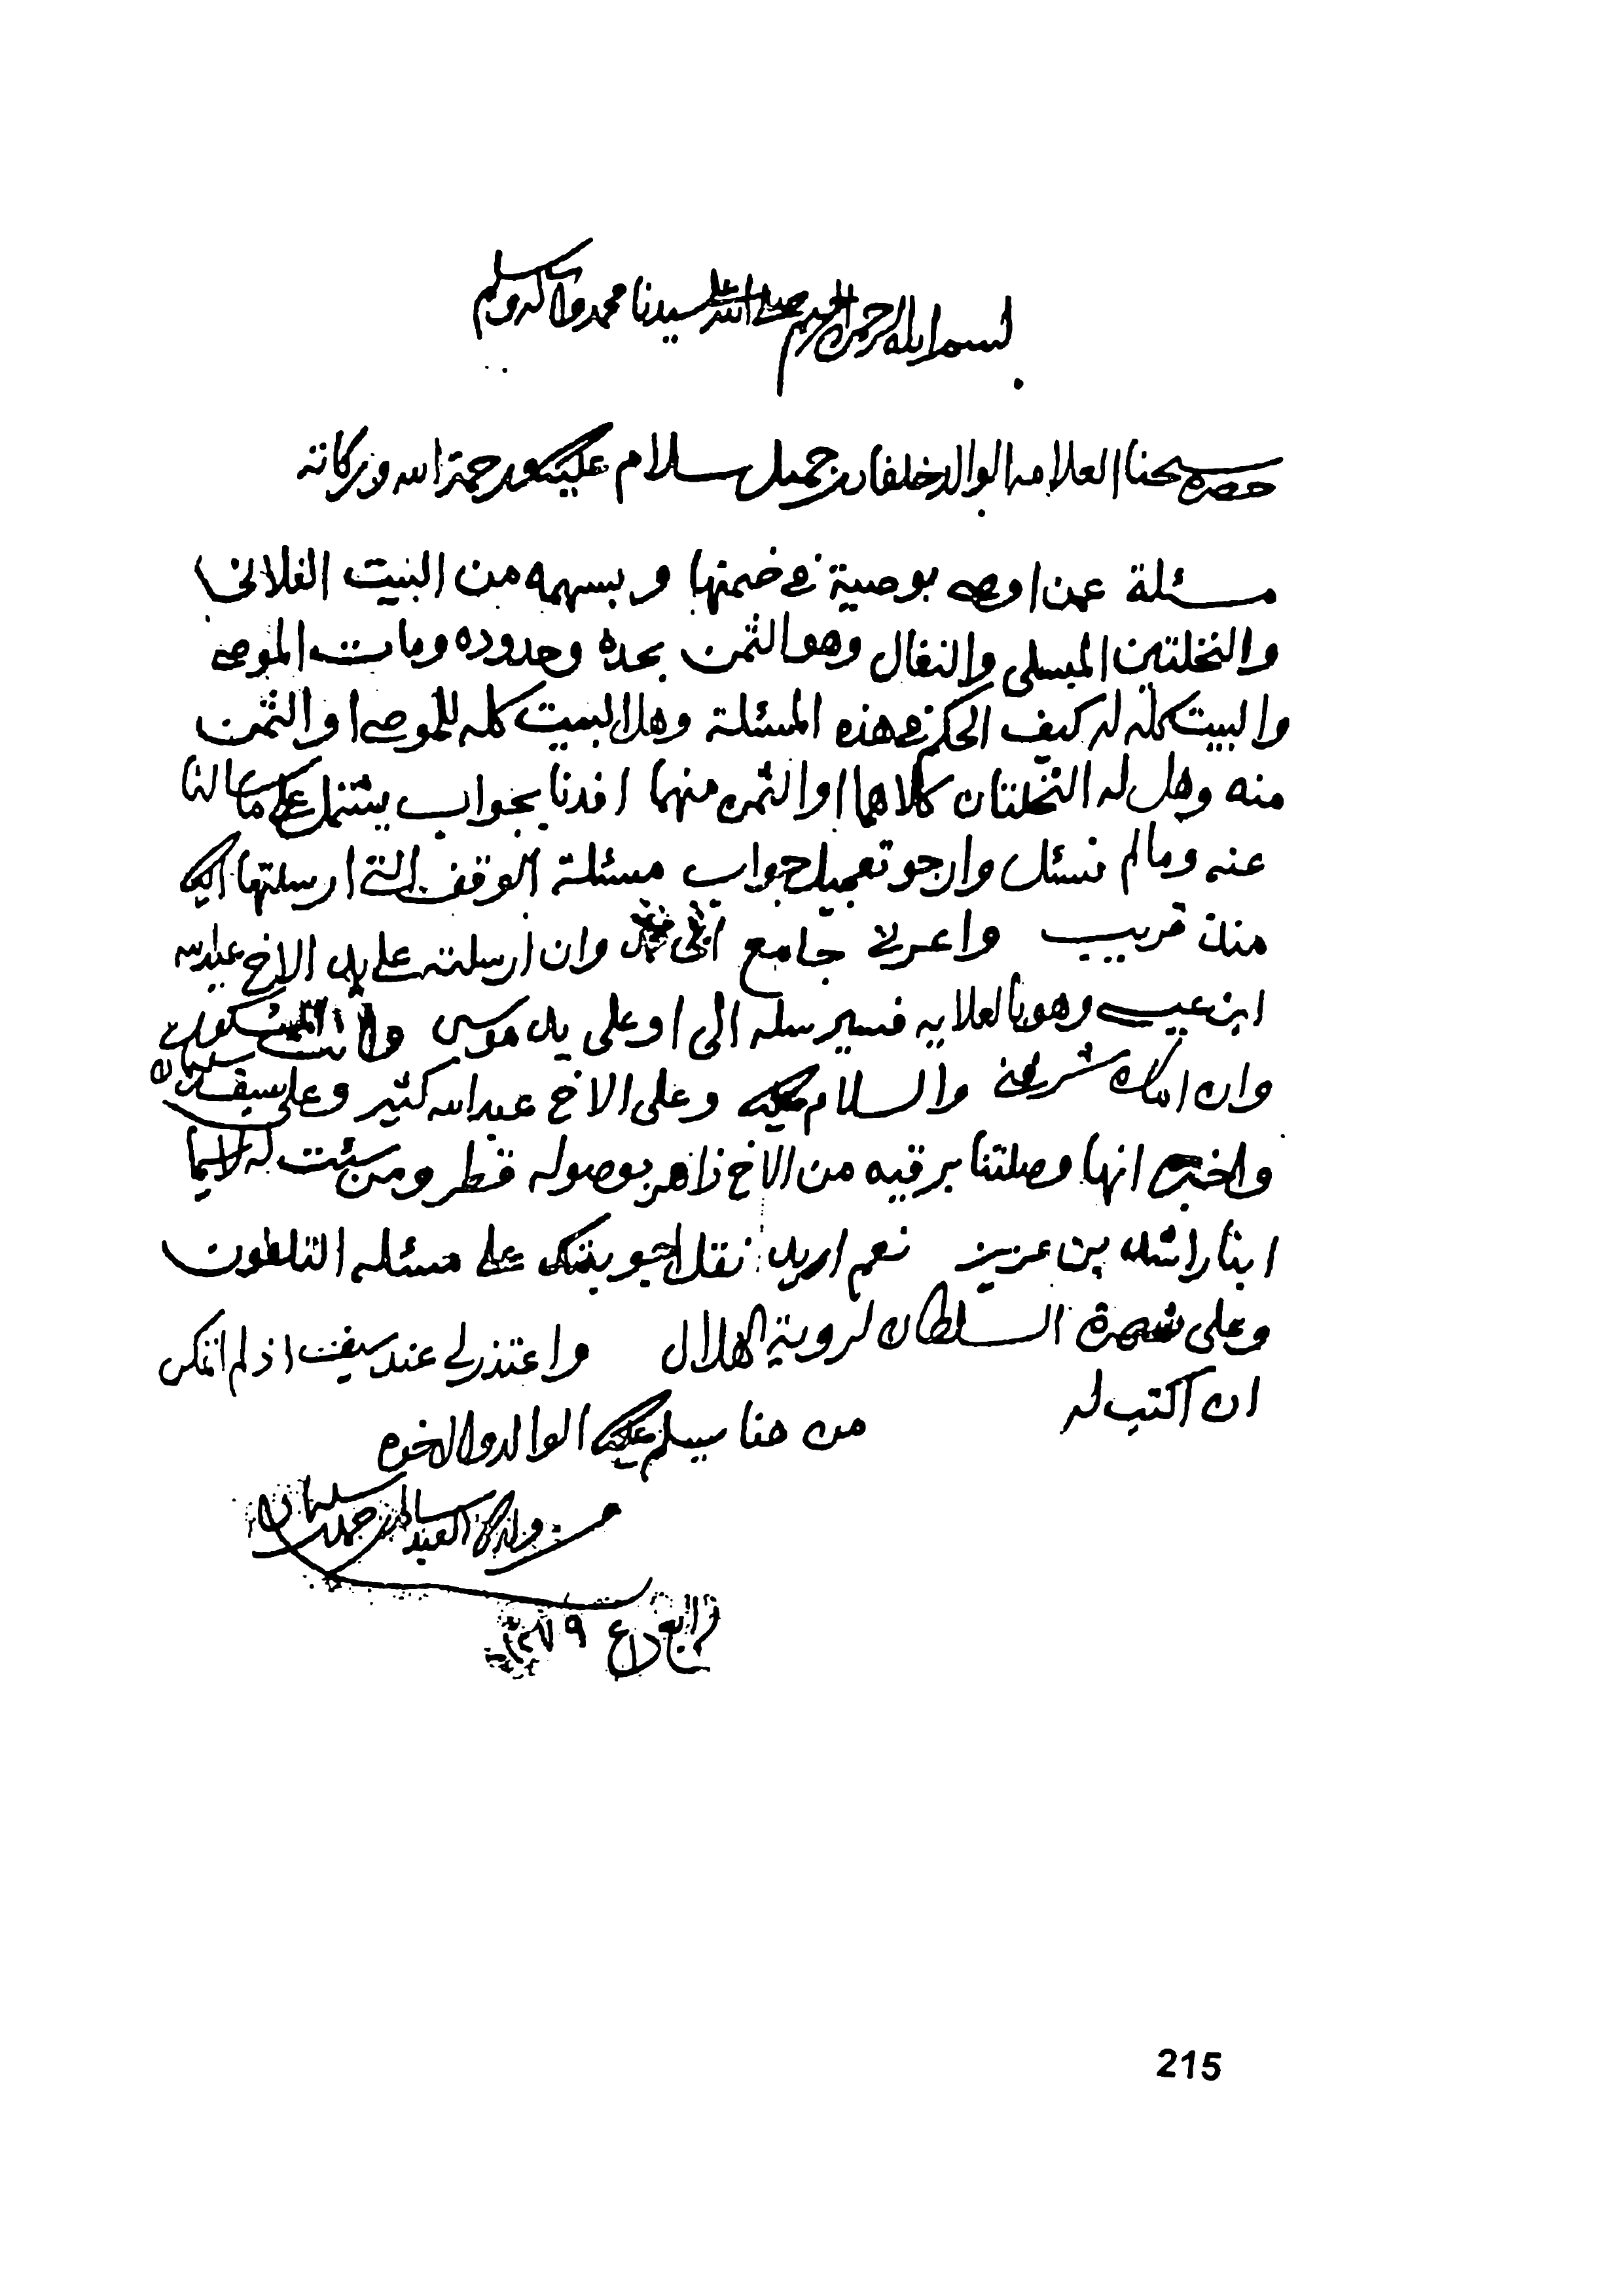 بسم الله الرحمن الرحيم صلى الله على سيدنا محمد وآله وسلم
حضرة شيخنا العلامة الوالد خلفان بن جميل سلام عليكم ورحمة الله وبركاته
مسئلة عمن اوصى بوصية في ضمنها وبسهمه من البيت الفلاني
والنخلتين المبسلي والنغال وهو الثمن بحده وحدوده ومات الموصي
والبيت كله له كيف الحكم في هذه المسئلة وهل البيت كله للموصى او الثمن
منه وهل له النخلتان كلاهما او الثمن منهما افدنا بجواب يشتمل على ما سالنا
عنه وما لم نسئل وارجو تعجيل جواب مسئلة الوقف التي ارسلتها اليك
منذ قريب واعرني جامع ابي وان ارسلته على يد الاخ عبدالله
ابن عيسى وهو بالعلايه فسيرسله الى او على يد موسى وانت المشكور
وان اتاك شريفي والسلام عليك وعلى الاخ عبدالله كثير وعلى سيف سليمان
واخبره انها وصلتنا برقيه من الاخ زاهر بوصوله قطر ومن شئت له لاسيما
ابننا راشد بن عزيز نعم اريد نقل اجوبتك على مسئله التلفون
وعلى شهرة السلطان لروية الهلال واعتذر لي عند سيف اذ لم اتمكن
ان اكتب له
من هنا يسلم عليك الوالد والاخوه
من ولدك العبد سالم بن حمد بن سليمان
رابع ١٣٧٩
215